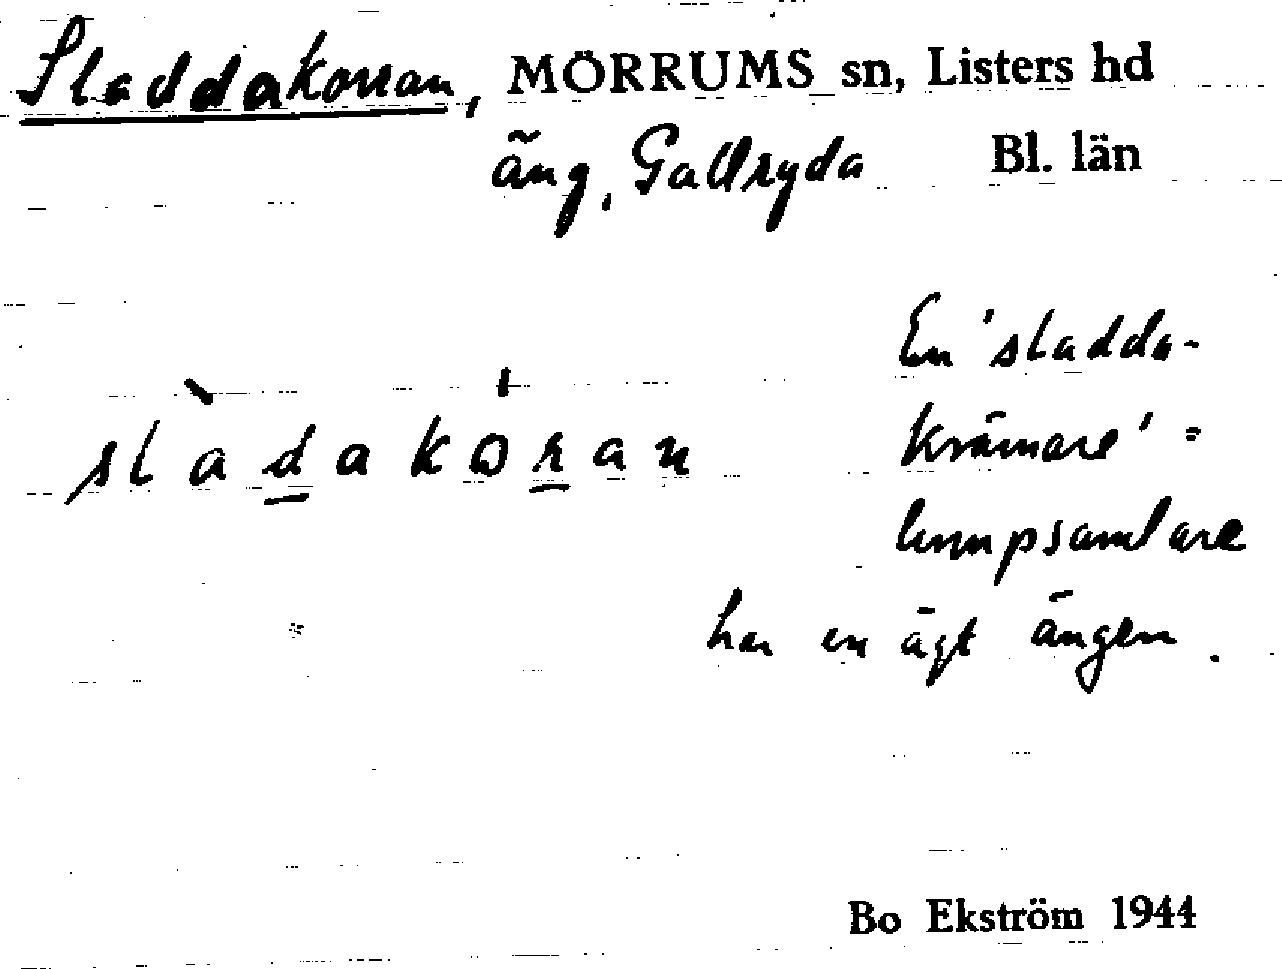 Sladdakorran, MÖRRUMS sn, Listers hd
äng, Gallryda Bl. län
sladakoran
En 'sladda-
krämare' =
lumpsamlare
har en ägt ängen.
Bo Ekström 1944